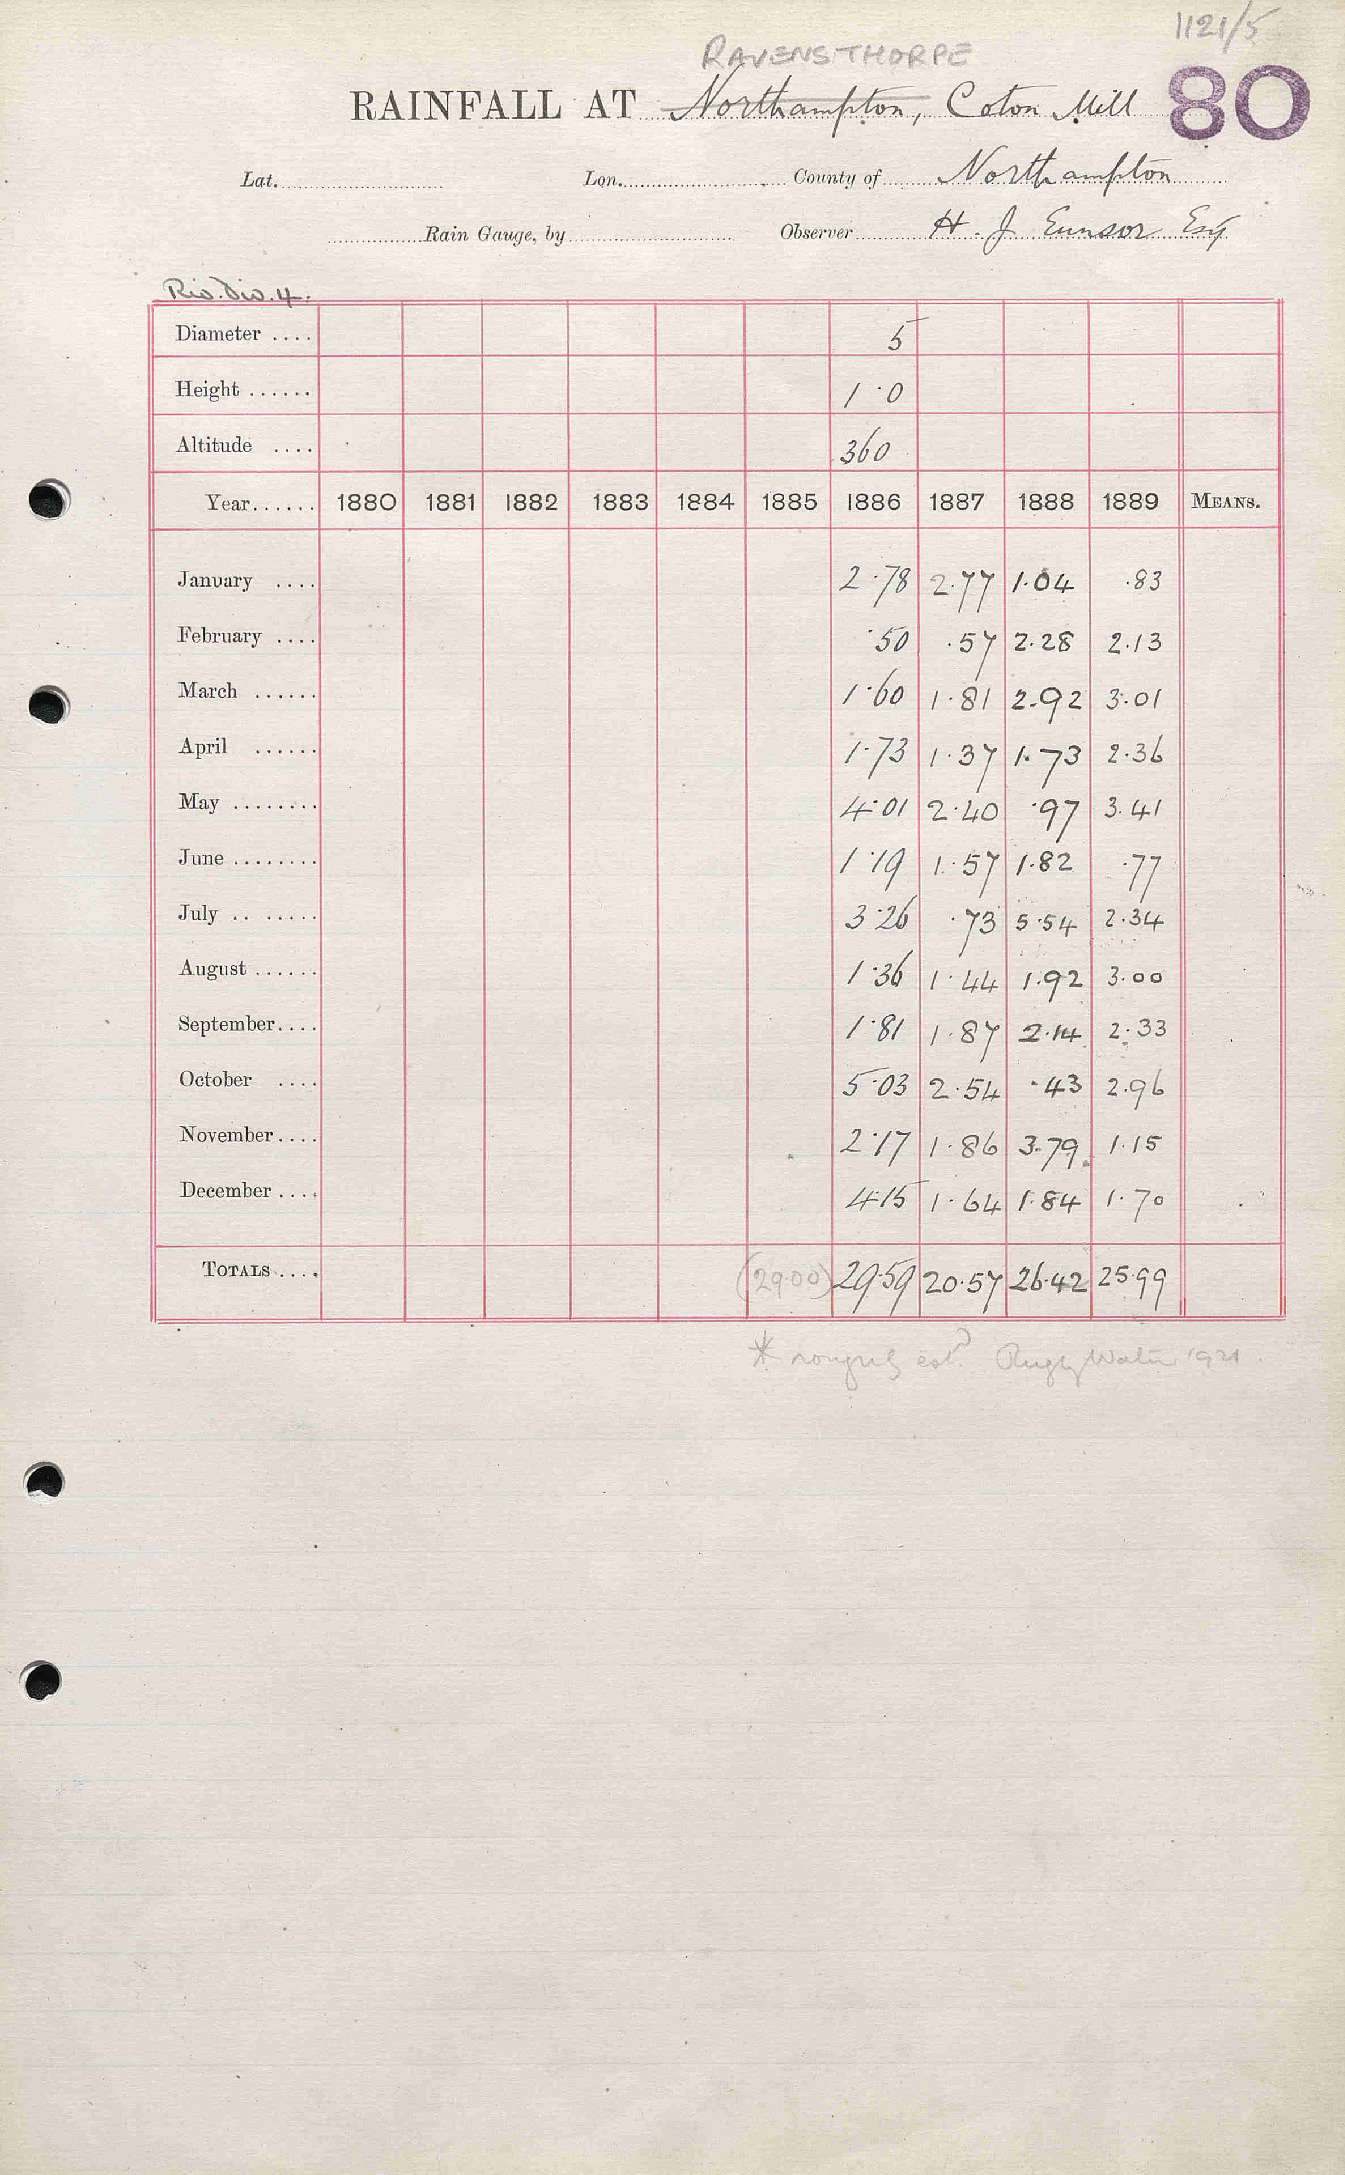 1121/5
RAVENSTHORPE
RAINFALL AT Northampton, Coton Mill 80
Lat. Lon. County of Northampton
Rain Gauge, by Observer H. J. Eunson Esq
Riv. Div. 4.
Diameter .... 5
Height ...... 1·0
Altitude .... 360
Year...... 1880 1881 1882 1883 1884 1885 1886 1887 1888 1889 MEANS.
January .... 2·78 2·77 1·04 ·83
February .... ·50 ·57 2·28 2·13
March ...... 1·60 1·81 2·92 3·01
April ...... 1·73 1·37 1·73 2·36
May ........ 4·01 2·40 ·97 3·41
June ........ 1·19 1·57 1·82 ·77
July .. ..... 3·26 ·73 5·54 2·34
August ...... 1·36 1·44 1·92 3·00
September.... 1·81 1·87 2·14 2·33
October .... 5·03 2·54 ·43 2·96
November.... 2·17 1·86 3·79 1·15
December .... 4·15 1·64 1·84 1·70
TOTALS .... (29·00) 29·59 20·57 26·42 25·99
* est? Rugby Water 1921.